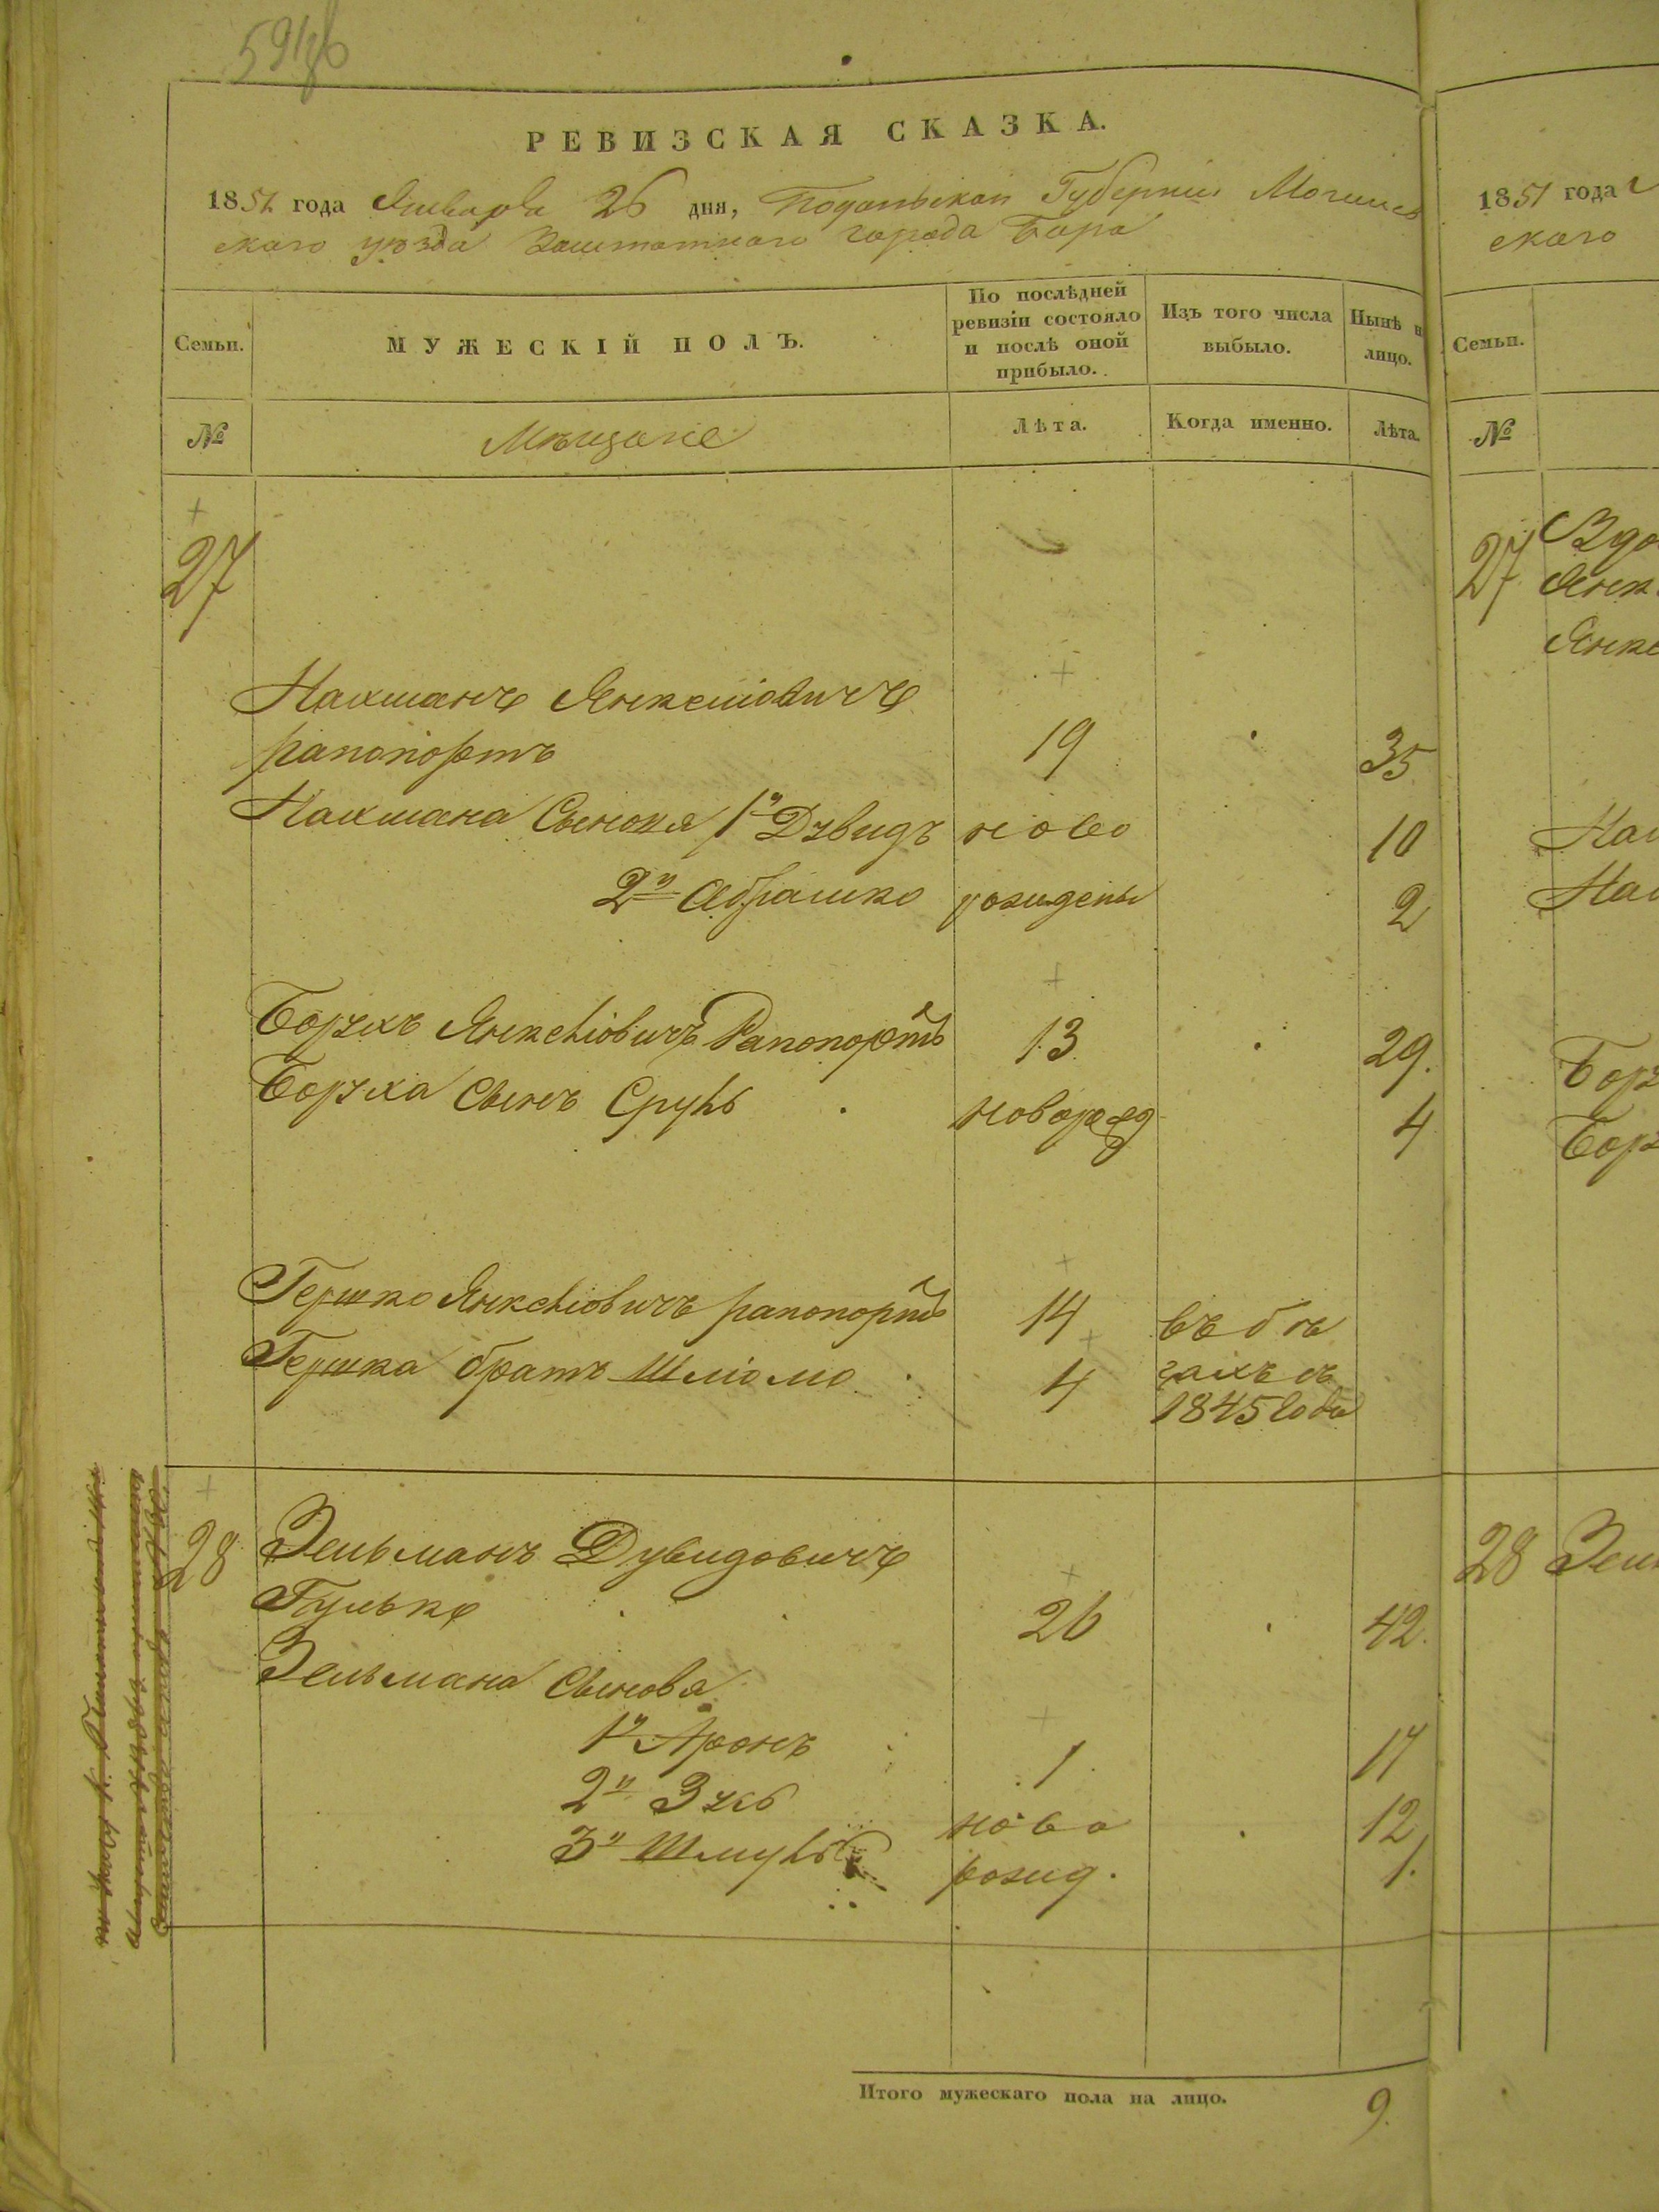 59 об
РЕВИЗСКАЯ СКАЗКА.
1851 года Января 26 дня, Подольской Губерніи Могилев
скаго уезда Заштатнаго города Бара
Семьи.
МУЖЕСКІЙ ПОЛЪ.
По послѣдней ревизіи состояло и послѣ оной прибыло.
Изъ того числа выбыло.
Нынѣ н лицо.
№
Мещане
Лѣта.
Когда именно.
Лѣта.
27
Нахманъ Янкеліовичъ
рапопортъ 19 35
Нахмана Сыновя 1й Дувидъ ново 10
2й Абрашко рожидены 2
Борухъ Янкеліовичъ Рапопортъ 13 29.
Боруха Сынъ Сруль новорожд 4
Гершко Янкеліовичъ рапопортъ 14 въ бѣ
Гершка братъ Шліомо 4 гахъ съ
1845 года
28 Зельманъ Дувидовичъ
Гулько 26 42.
Зельмана Сыновя
1й Аронъ 1 17
2й Зусь ново 12
3й Шмуль рожид. 1.
Итого мужескаго пола на лицо. 9.
1851 года
скаго
Семьи.
№
27 Вдо
Янк
Янке
Нах
Нах
Бор
Бор
28 Зель